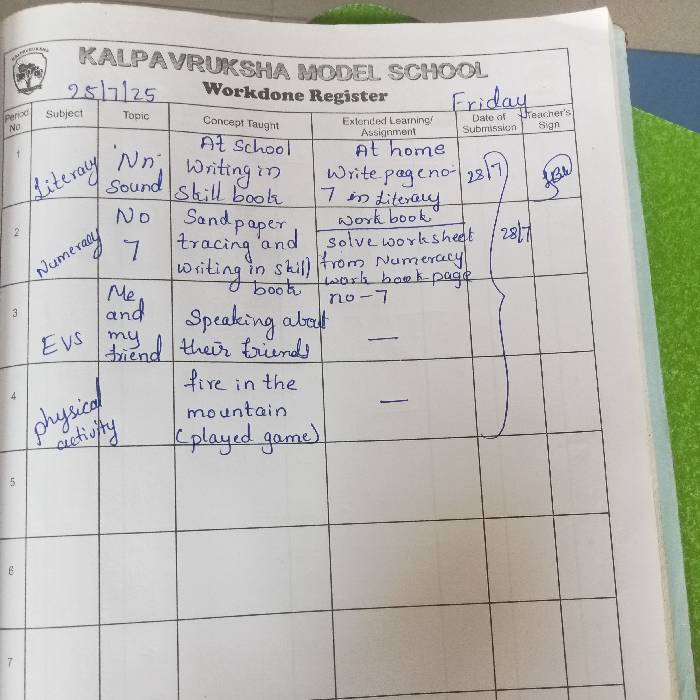 KALPAVRUKSHA MODEL SCHOOL
25/7/25 Workdone Register Friday
Period No. Subject Topic Concept Taught Extended Learning/ Assignment Date of Submission Teacher's Sign
1 Literacy 'Nn' Sound At School Writing in Skill book At home Write page no- 7 in Literacy work book 28/7
2 Numeracy No 7 Sand paper tracing and writing in skill book solve worksheet from Numeracy work book page no-7 28/7
3 EVS Me and my friend Speaking about their friends —
4 physical activity fire in the mountain (played game) —
5
6
7